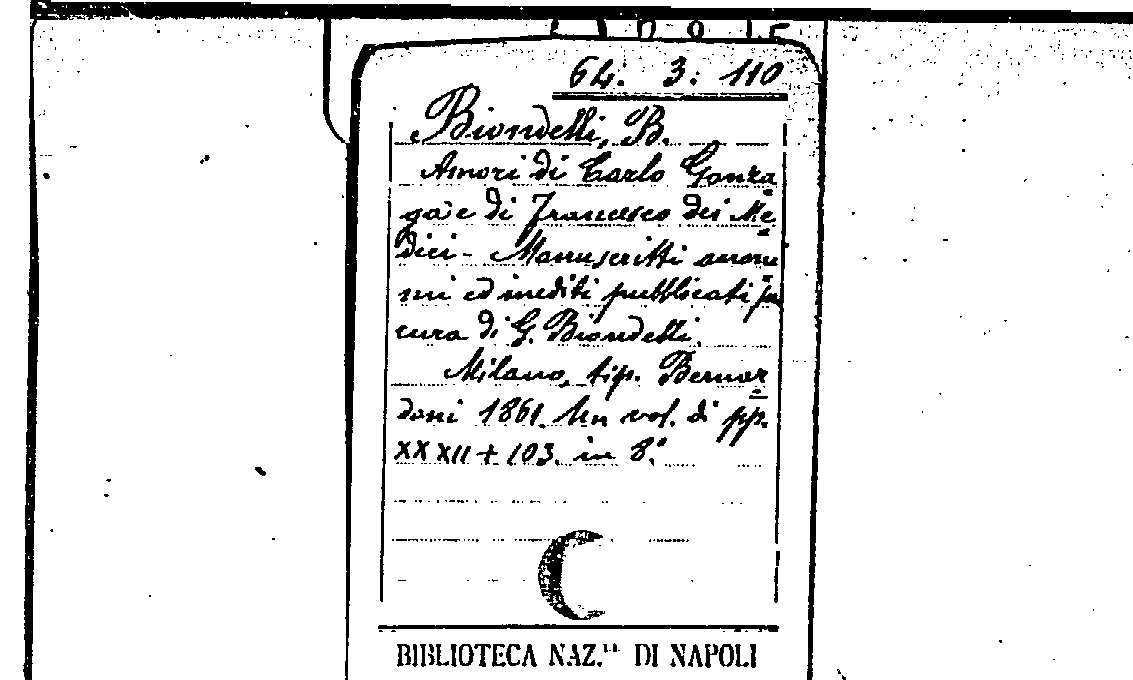 64. 3. 110
Biondelli, B.
Amori di Carlo Gonza
ga e di Francesco dei Me
dici - Manuscritti anoni
mi ed inediti pubblicati per
cura di G. Biondelli.
Milano, tip. Bernar
doni 1861. Un vol. di pp.
XXXII + 103. in 8.°
BIBLIOTECA NAZ.le DI NAPOLI